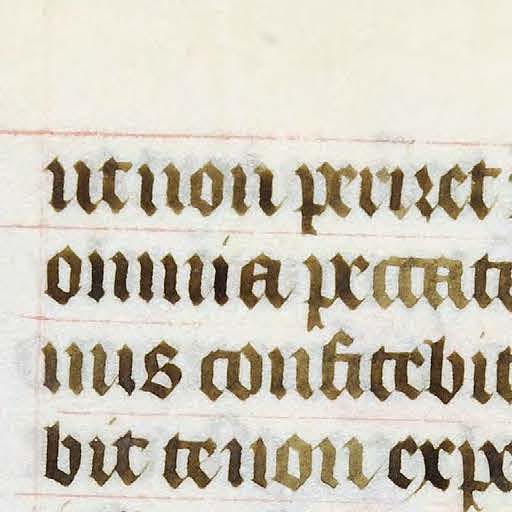 ut non periret
omnia peccat
nus confitebit
bit te non expe